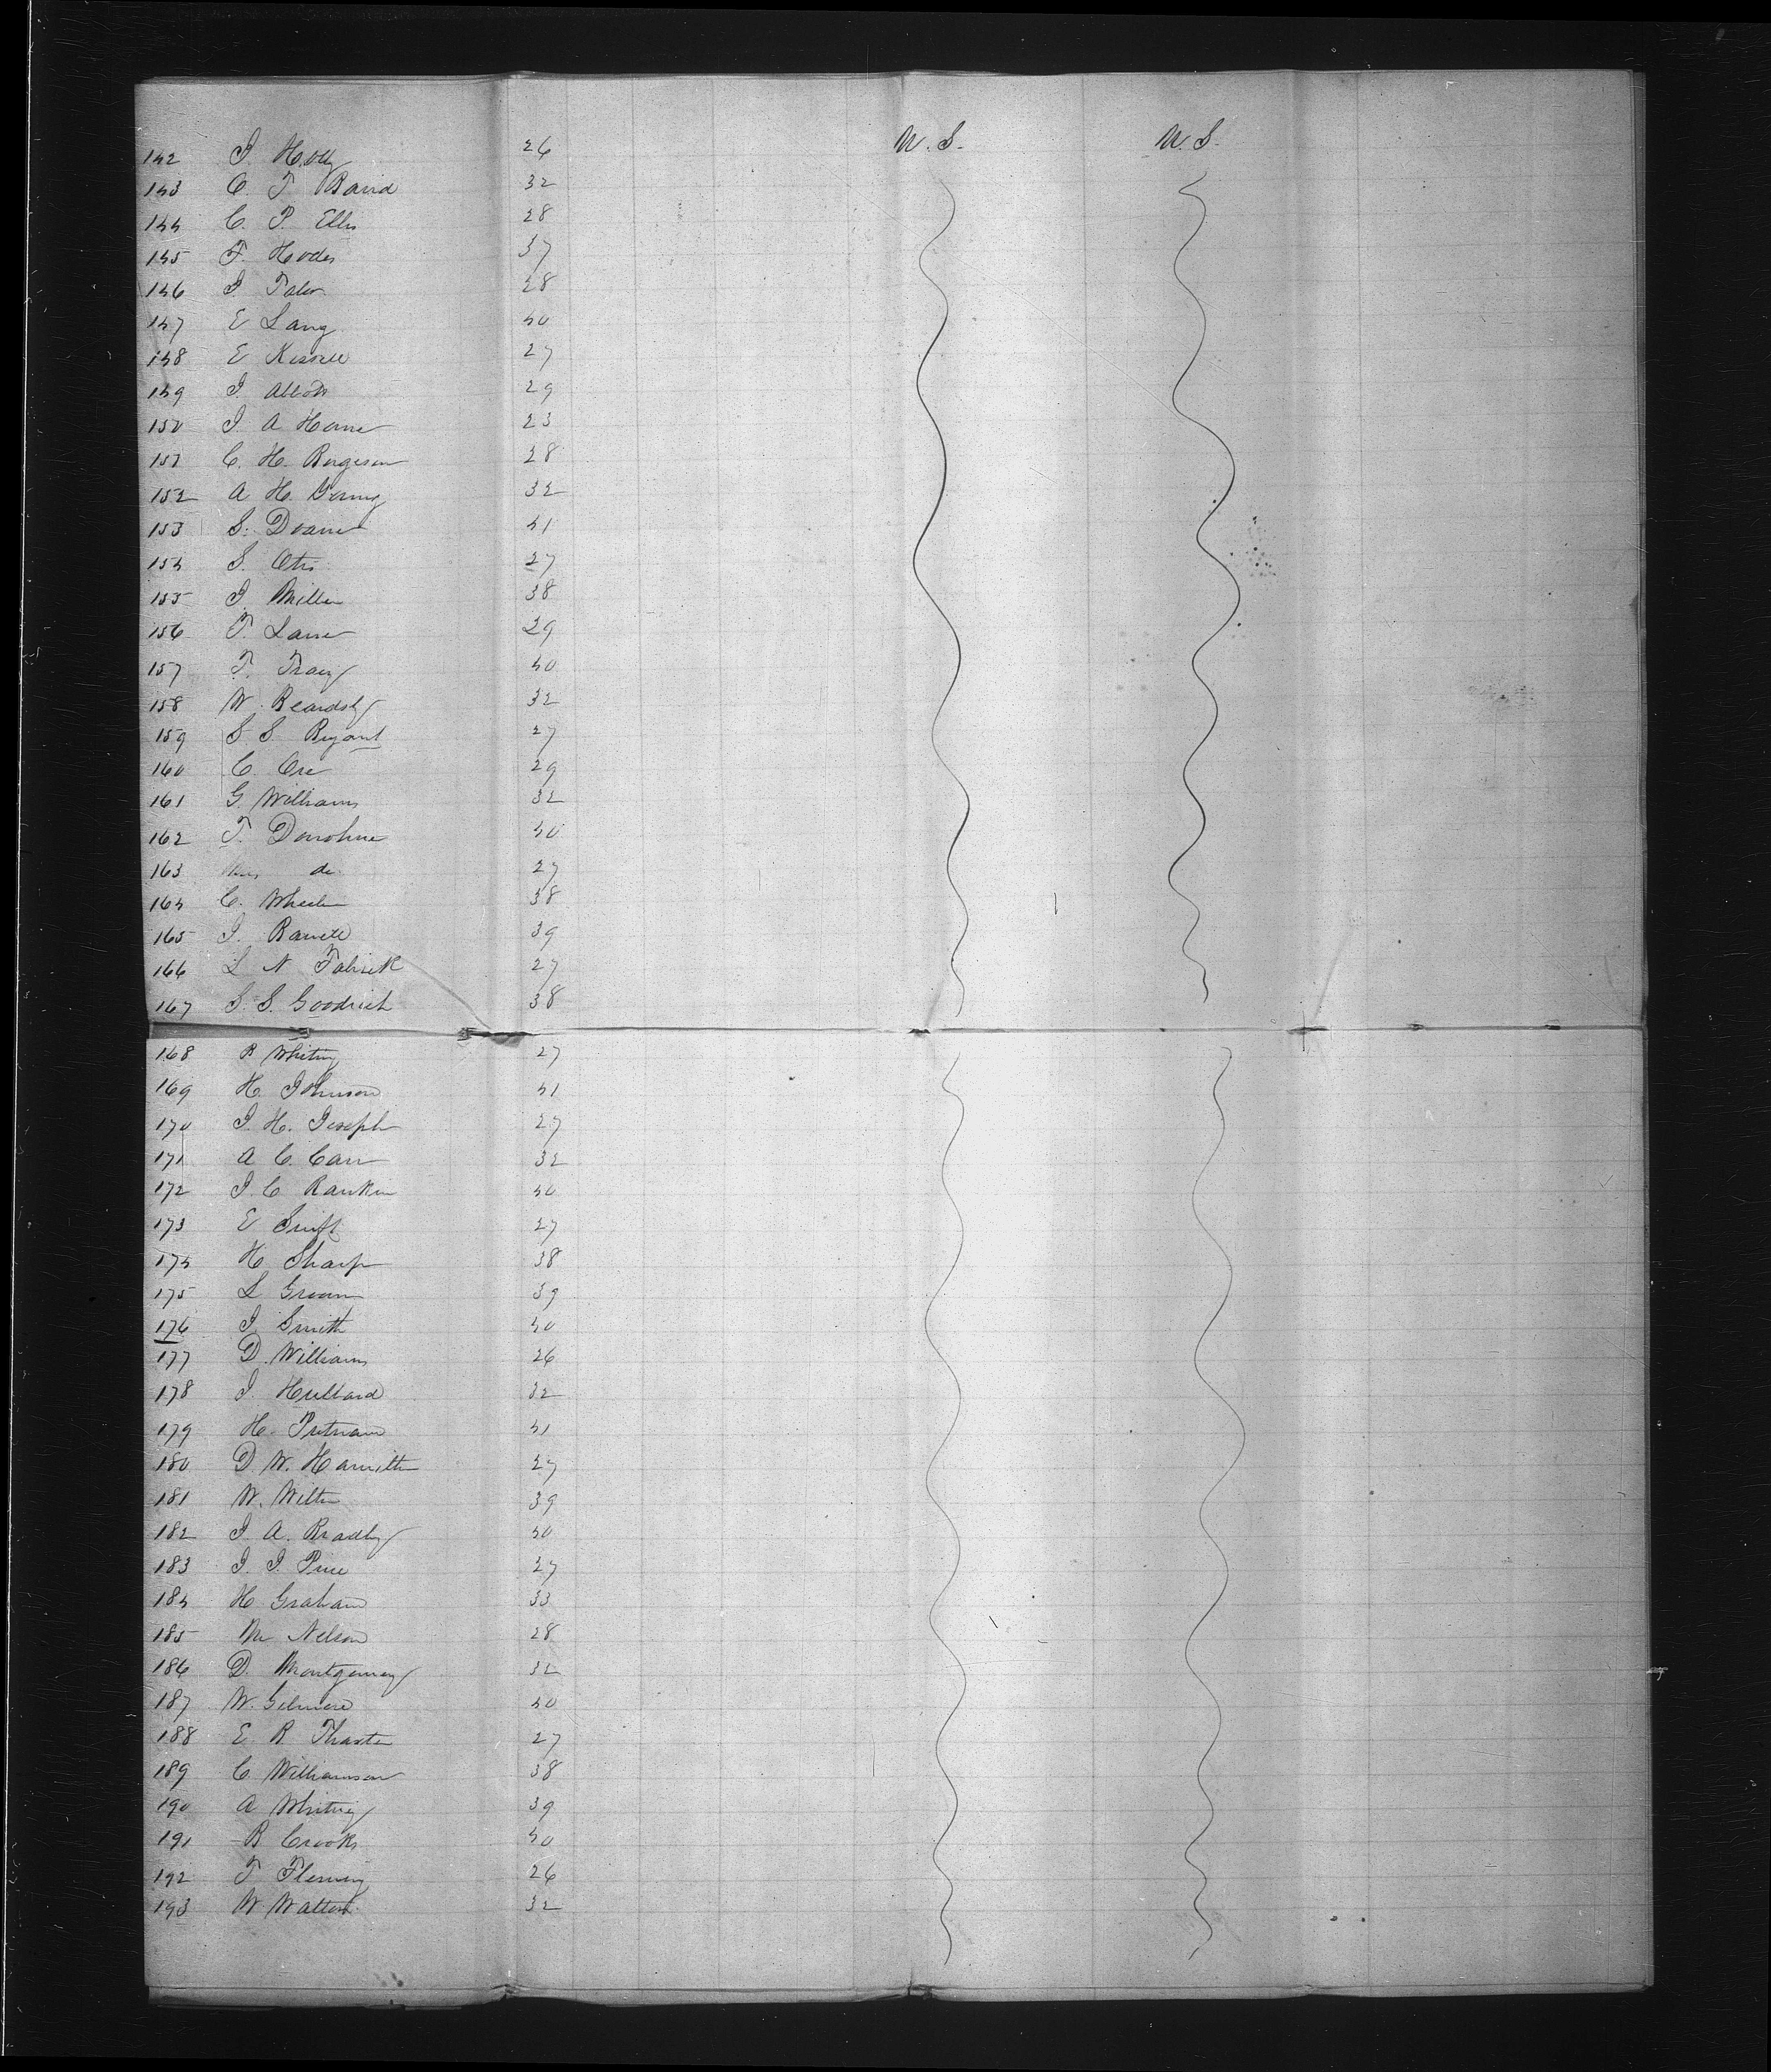 142 J. Holly 26 U. S. U. S.
143 C. T. Baird 32
144 C. P. Ellis 28
145 F. Hodes 37
146 J. Taber 28
147 E Lang 40
148 E 27
149 J. Abbott 29
150 J. A Horne 23
151 C. H. Bergeson 28
152 A H. Young 32
153 S. Doane 41
154 S. Otis 27
155 J. Miller 38
156 T. Lane 29
157 T. Tracy 40
158 W. Beardsly 32
159 S S. Bryant 27
160 C. 29
161 G. Williams 32
162 T. Donohue 40
163 Mrs do 27
164 C. Wheeler 38
165 J. Barrett 39
166 L N 27
167 S. S. Goodrich 38
168 B Whitney 27
169 H. Johnson 41
170 J. H. Joseph 27
171 A C. Carr 32
172 J. C Rankin 40
173 E Swift 27
174 H Sharp 38
175 L Groom 39
176 J. Smith 40
177 D. Williams 26
178 J. Hubbard 32
179 H. Putnam 41
180 D. W. Hamilton 27
181 W. Wilton 39
182 J. A. Bradley 40
183 J. J. Price 27
184 H Graham 33
185 M Nelson 28
186 D. Montgomery 32
187 W. Gilmore 40
188 E R. Thaxter 27
189 C Williamson 38
190 A Whiting 39
191 R Crooks 40
192 T Fleming 26
193 W Walton 32